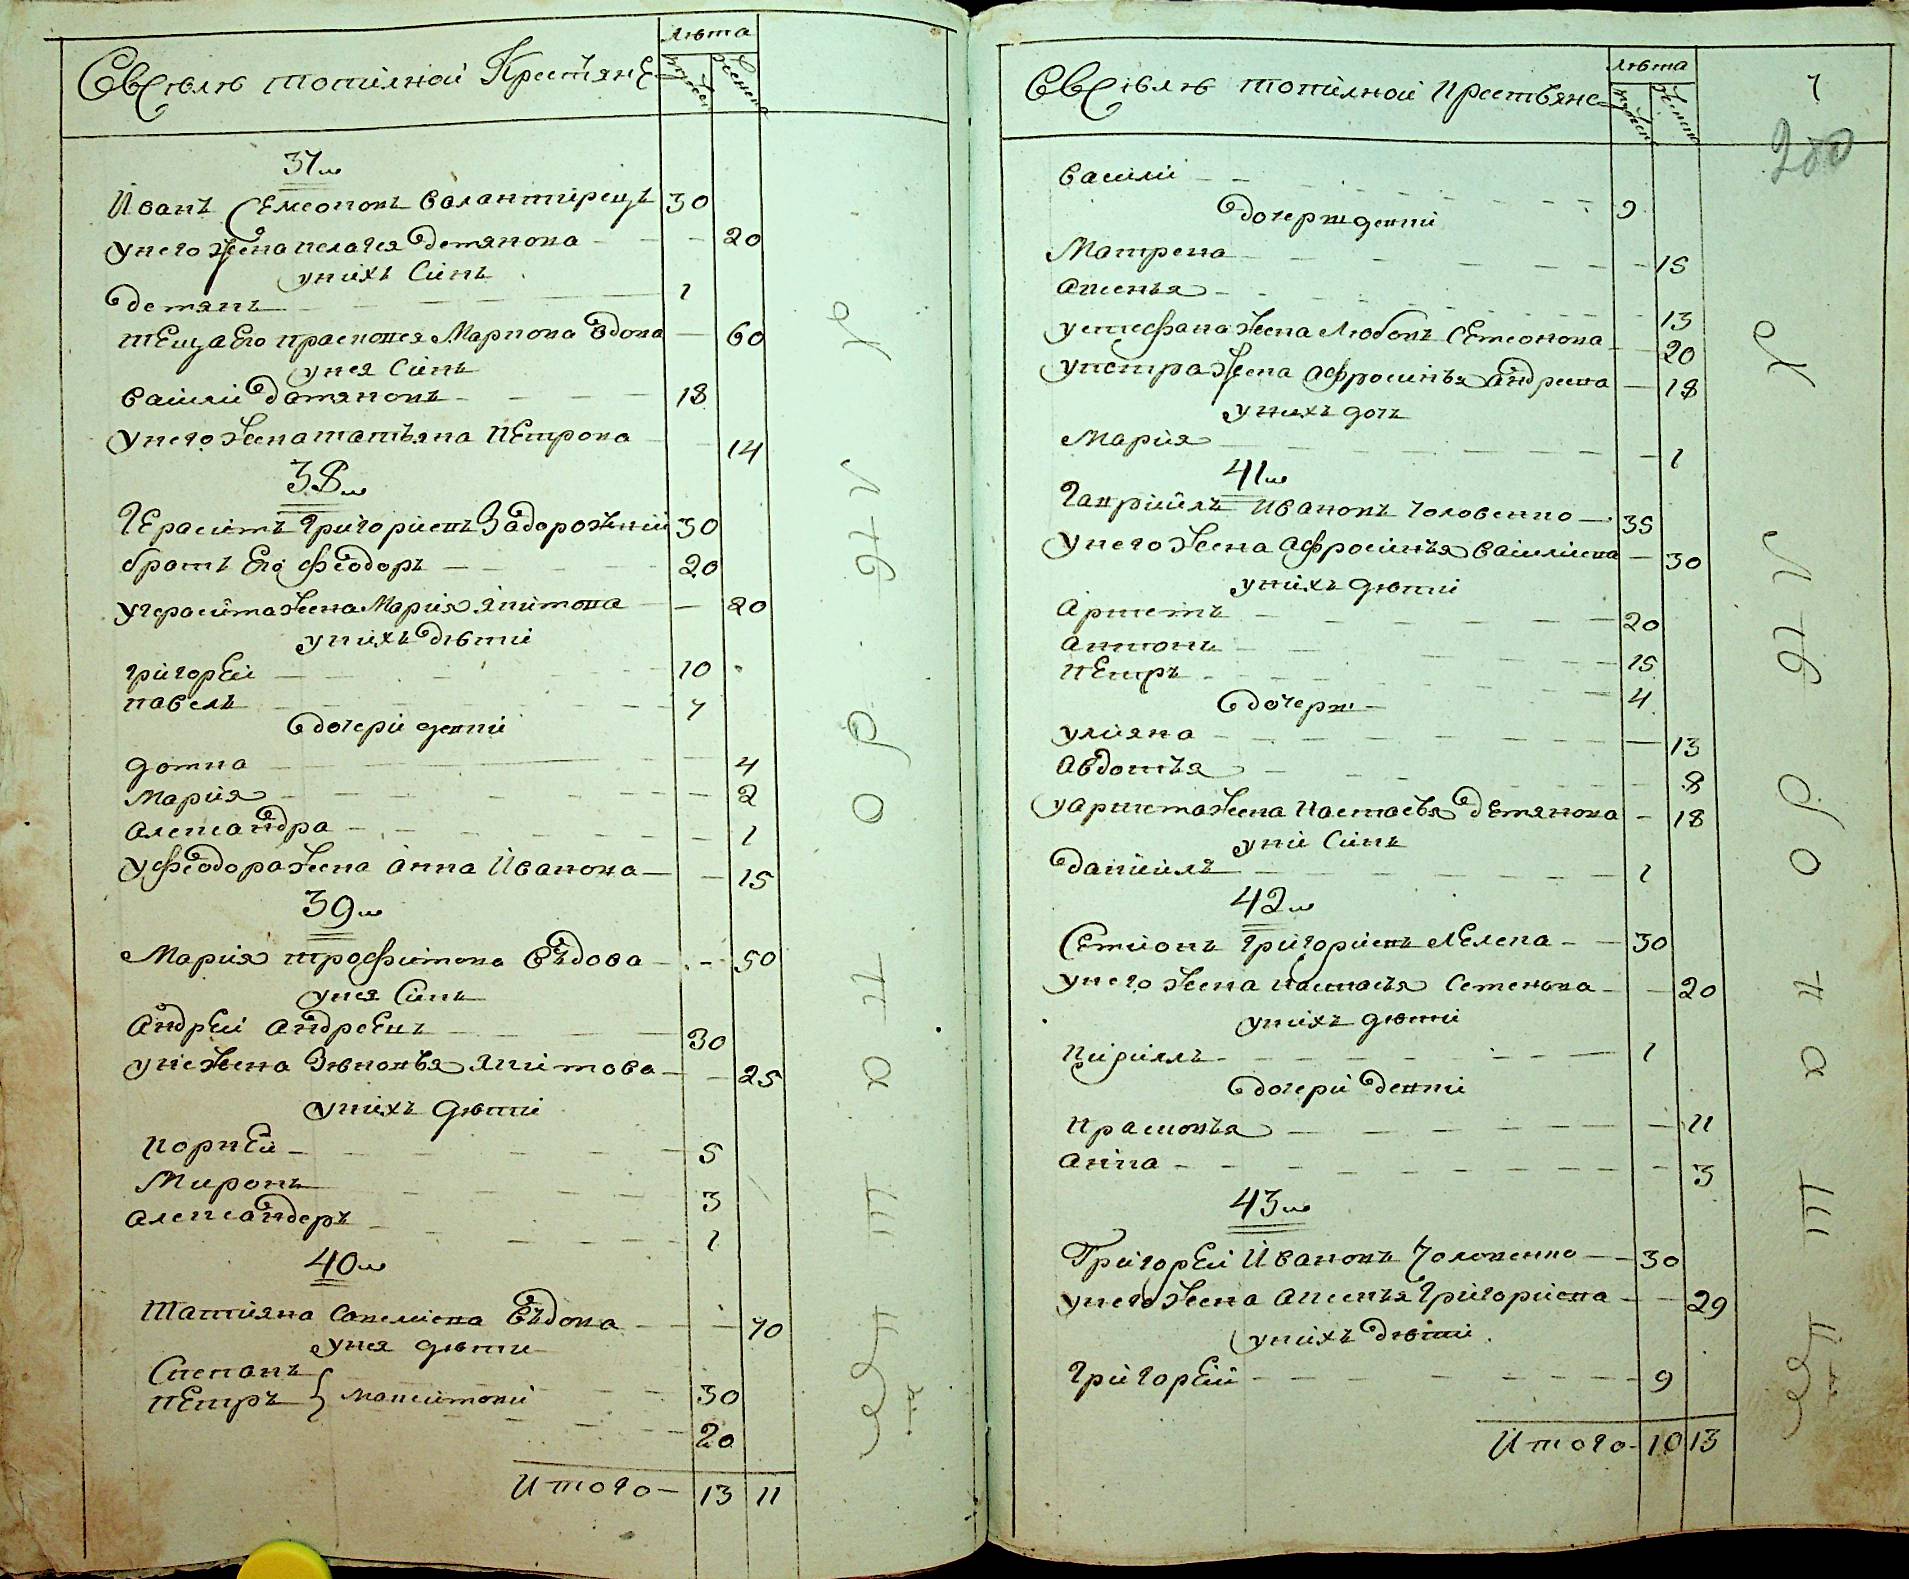 Въ Селѣ топилной Крестянѣ
лѣта
мужеск
женска
37м
Иванъ Семеоновъ валантирецъ 30
у него жена пелагея демянова - - 20
у нихъ синъ
демянъ - - - 1
тещаЕго прасковея Маркова вдова - 60
у нея синъ
василий дамяновъ - - - 18
у него жена татьяна Петрова - 14
38м
Герасимъ Григориевъ Задорожний 30
братъ Его феодоръ - - - 20
у герасима жена Мария якимова - - 20
у нихъ дѣти
григорей - - - 10
павелъ - - - 7
дочери дети
домна - - - 4
мария - - - 2
александра - - - 1
у феодора жена анна Иванова - - 15
39м
Мария трофимова въдова - - 50
у нея синъ
андрей андреевъ - - - 30
у не жена Зѣновья якимова - - 25
у нихъ дѣти
корней - - - 5
Миронъ - - - 3
александеръ - - - 1
40м
Татияна савелиева въдова - - 70
у нея дѣти
Степанъ - - - 30
петръ } максимови - - - 20
Итого - 13 11
Въ Селѣ топилной крестьянѣ
лѣта
мужеск
женска
7
280
василий - - - 9
дочери дети
Матрена - - - 15
аксенья - - - 13
у стефана жена любовь Семеонова - 20
у петра жена афросинья андреева - 18
у нихъ доч
Мария - - - 1
41м
Гавриилъ ивановъ головенко - 35
у него жена афросинья василиева - 30
у нихъ дѣти
артемъ - - - 20
антонъ - - - 15
петръ - - - 4
дочери -
улияна - - - 13
авдотья - - - 8
у артема жена настасья демянова - 18
у ни синъ
даниилъ - - - 1
42м
Семионъ григориевъ лелека - - 30
у него жена настасья семенова - - 20
у нихъ дѣти
кирилъ - - - 1
дочери дети
прасковья - - - 11
анна - - - 3
43м
Григорей Ивановъ головенко - - 30
у него жена аксенья Григориева - - 29
у нихъ дѣти
григорей - - - 9
Итого - 10 13